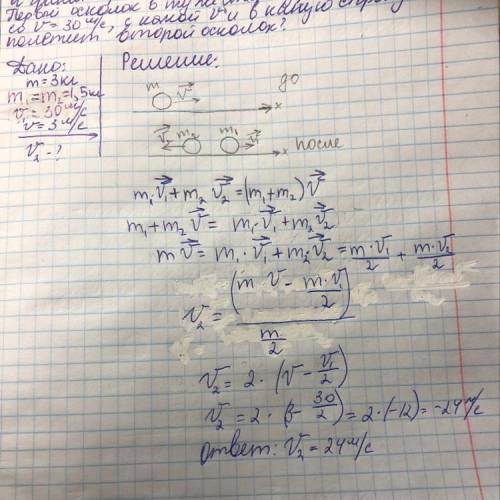 Первой осколок в ту же
со v = 30 м/с, с какой v и в какую сторону
полетит второй осколок?
Дано:
m = 3кг
m₁ = m₂ = 1,5кг
v = 30 м/с
v = 3 м/с
v₂ - ?
Решение:
m v⃗ до
x
v⃗ m₂ m₁ v⃗ после
x
m₁v⃗₁ + m₂ v⃗₂ = (m₁ + m₂) v⃗
m₁ + m₂ v⃗ = m₁ · v⃗₁ + m₂ v⃗₂
m v⃗ = m₁ · v⃗₁ + m₂ v⃗₂ = m · v₁ / 2 + m · v₂ / 2
v₂ = (m v - m · v₁ / 2) / m / 2
v₂ = 2 · (v - v₁ / 2)
v₂ = 2 · (3 - 30 / 2) = 2 · (-12) = -24 м/с
Ответ: v₂ = 24 м/с